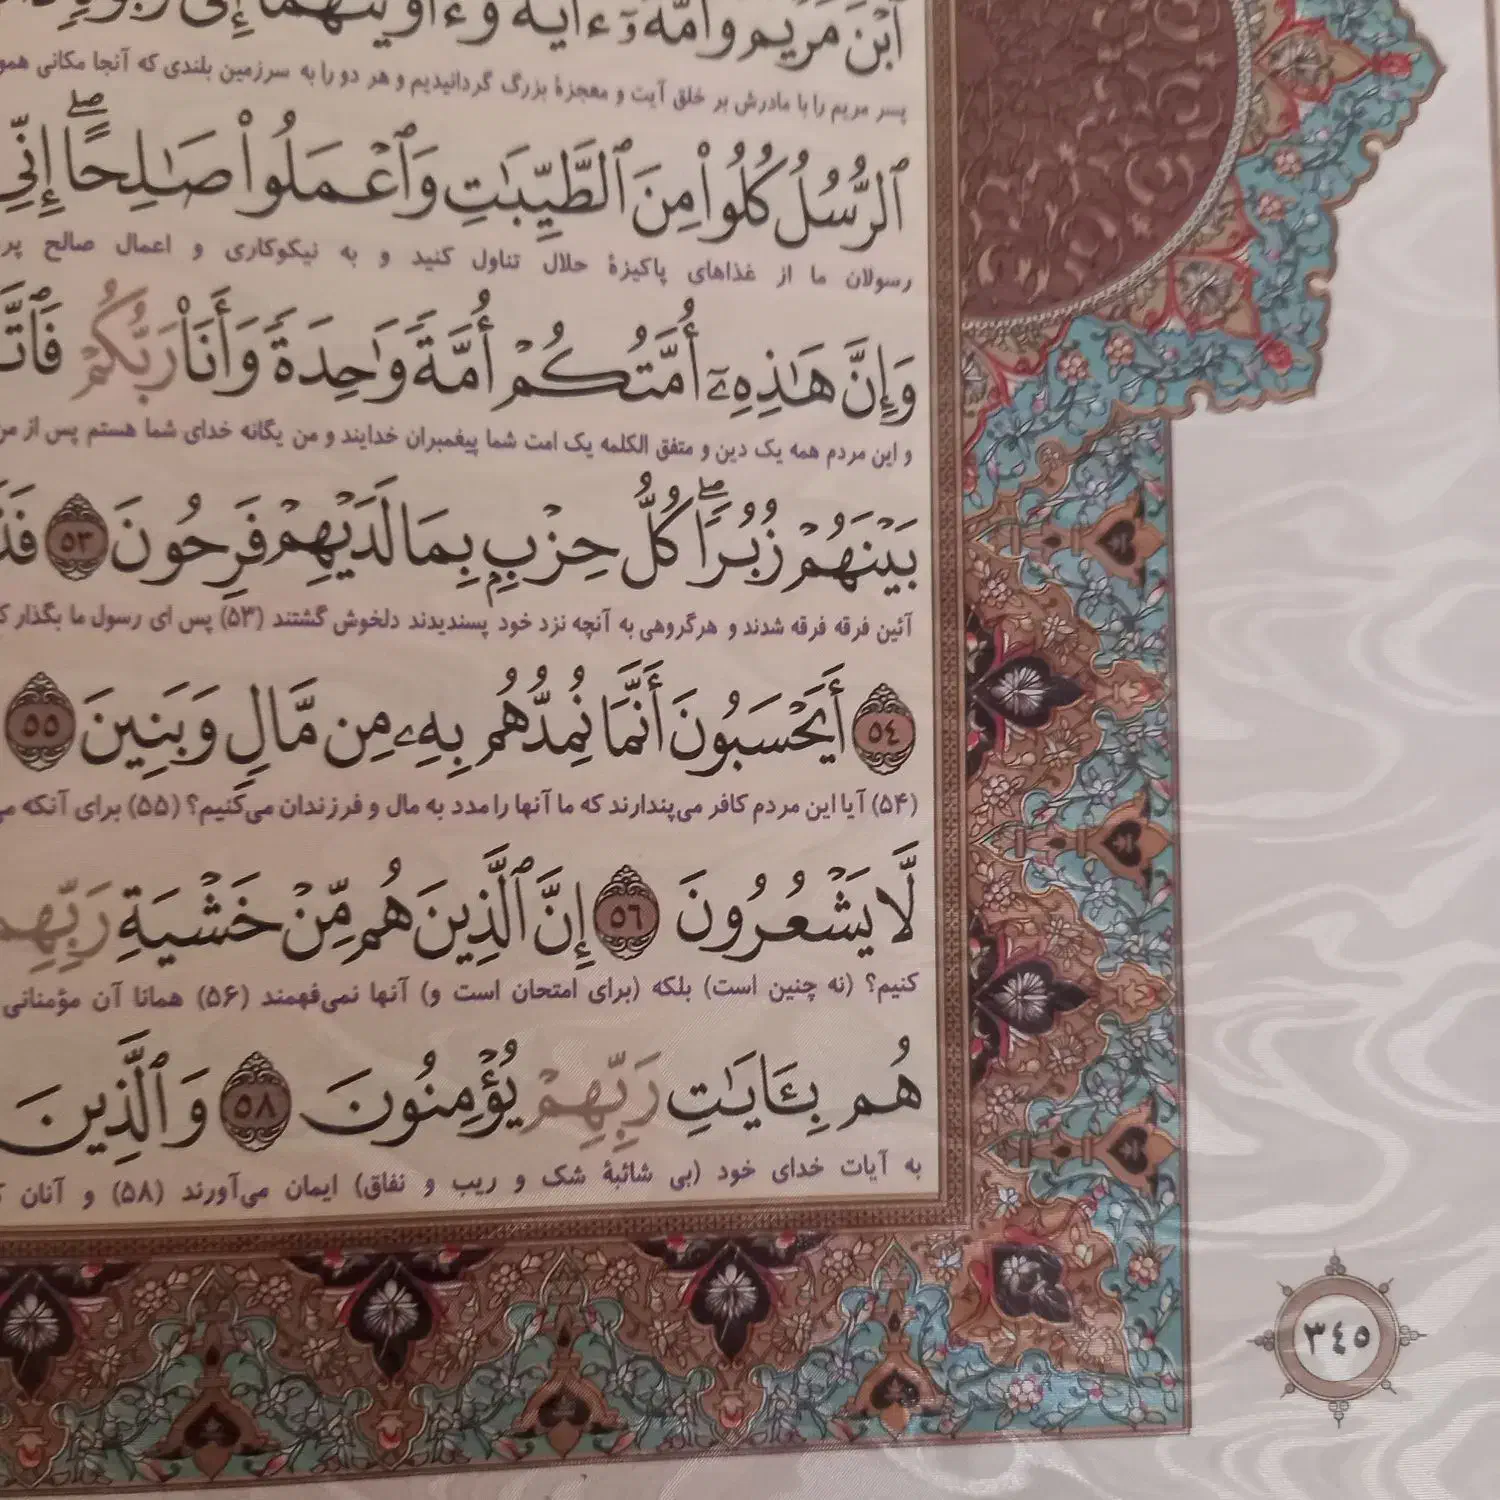 ٱبْنَ مَرْيَمَ وَأُمَّهُۥٓ ءَايَةً وَءَاوَيْنَٰهُمَآ إِلَىٰ رَبْوَةٍ
پسر مریم را با مادرش بر خلق آیت و معجزهٔ بزرگ گردانیدیم و هر دو را به سرزمین بلندی که آنجا مکانی
ٱلرُّسُلُ كُلُوا۟ مِنَ ٱلطَّيِّبَٰتِ وَٱعْمَلُوا۟ صَٰلِحًا ۖ إِنِّى
رسولان ما از غذاهای پاکیزهٔ حلال تناول کنید و به نیکوکاری و اعمال صالح
وَإِنَّ هَٰذِهِۦٓ أُمَّتُكُمْ أُمَّةً وَٰحِدَةً وَأَنَا۠ رَبُّكُمْ
و این مردم همه یک دین و متفق الکلمه یک امت شما پیغمبران خدایند و من یگانه خدای شما هستم پس از
بَيْنَهُمْ زُبُرًا ۖ كُلُّ حِزْبٍۭ بِمَا لَدَيْهِمْ فَرِحُونَ ٥٣
آئین فرقه فرقه شدند و هرگروهی به آنچه نزد خود پسندیدند دلخوش گشتند (۵۳) پس ای رسول ما بگذار
٥٤ أَيَحْسَبُونَ أَنَّمَا نُمِدُّهُم بِهِۦ مِن مَّالٍ وَبَنِينَ ٥٥
(۵۴) آیا این مردم کافر می‌پندارند که ما آنها را مدد به مال و فرزندان می‌کنیم؟ (۵۵) برای آنکه
لَّا يَشْعُرُونَ ٥٦ إِنَّ ٱلَّذِينَ هُم مِّنْ خَشْيَةِ رَبِّهِم
کنیم؟ (نه چنین است) بلکه (برای امتحان است و) آنها نمی‌فهمند (۵۶) همانا آن مؤمنانی
هُم بِـَٔايَٰتِ رَبِّهِمْ يُؤْمِنُونَ ٥٨ وَٱلَّذِينَ
به آیات خدای خود (بی شائبهٔ شک و ریب و نفاق) ایمان می‌آورند (۵۸) و آنان
٣٤٥